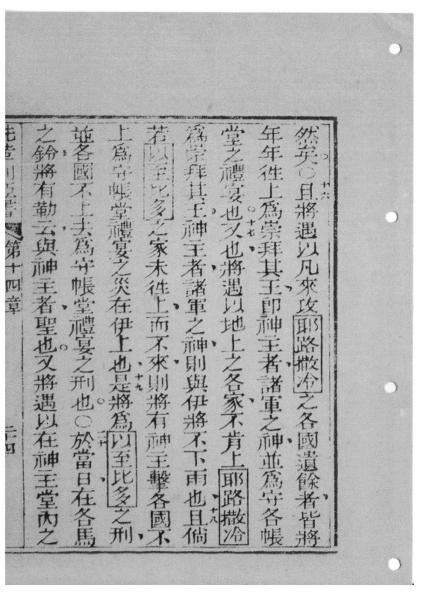 然矣○十六且將遇以凡來攻耶路撒冷之各國遺餘者皆將
年年徃上爲崇拜其王卽神王者諸軍之神並爲守各帳
堂之禮宴也十七又也將遇以地上之各家不肯上耶路撒冷
爲崇拜其王神王者諸軍之神則與伊將不下雨也十八且倘
若以至比多之家未徃上而不來則將有神王擊各國不
上爲守帳堂禮宴之災在伊上也十九是將爲以至比多之刑
並各國不上去爲守帳堂禮宴之刑也○二十於當日在各馬
之鈴將有勒云與神王者聖也○又將遇以在神王堂內之
第十四章 二四